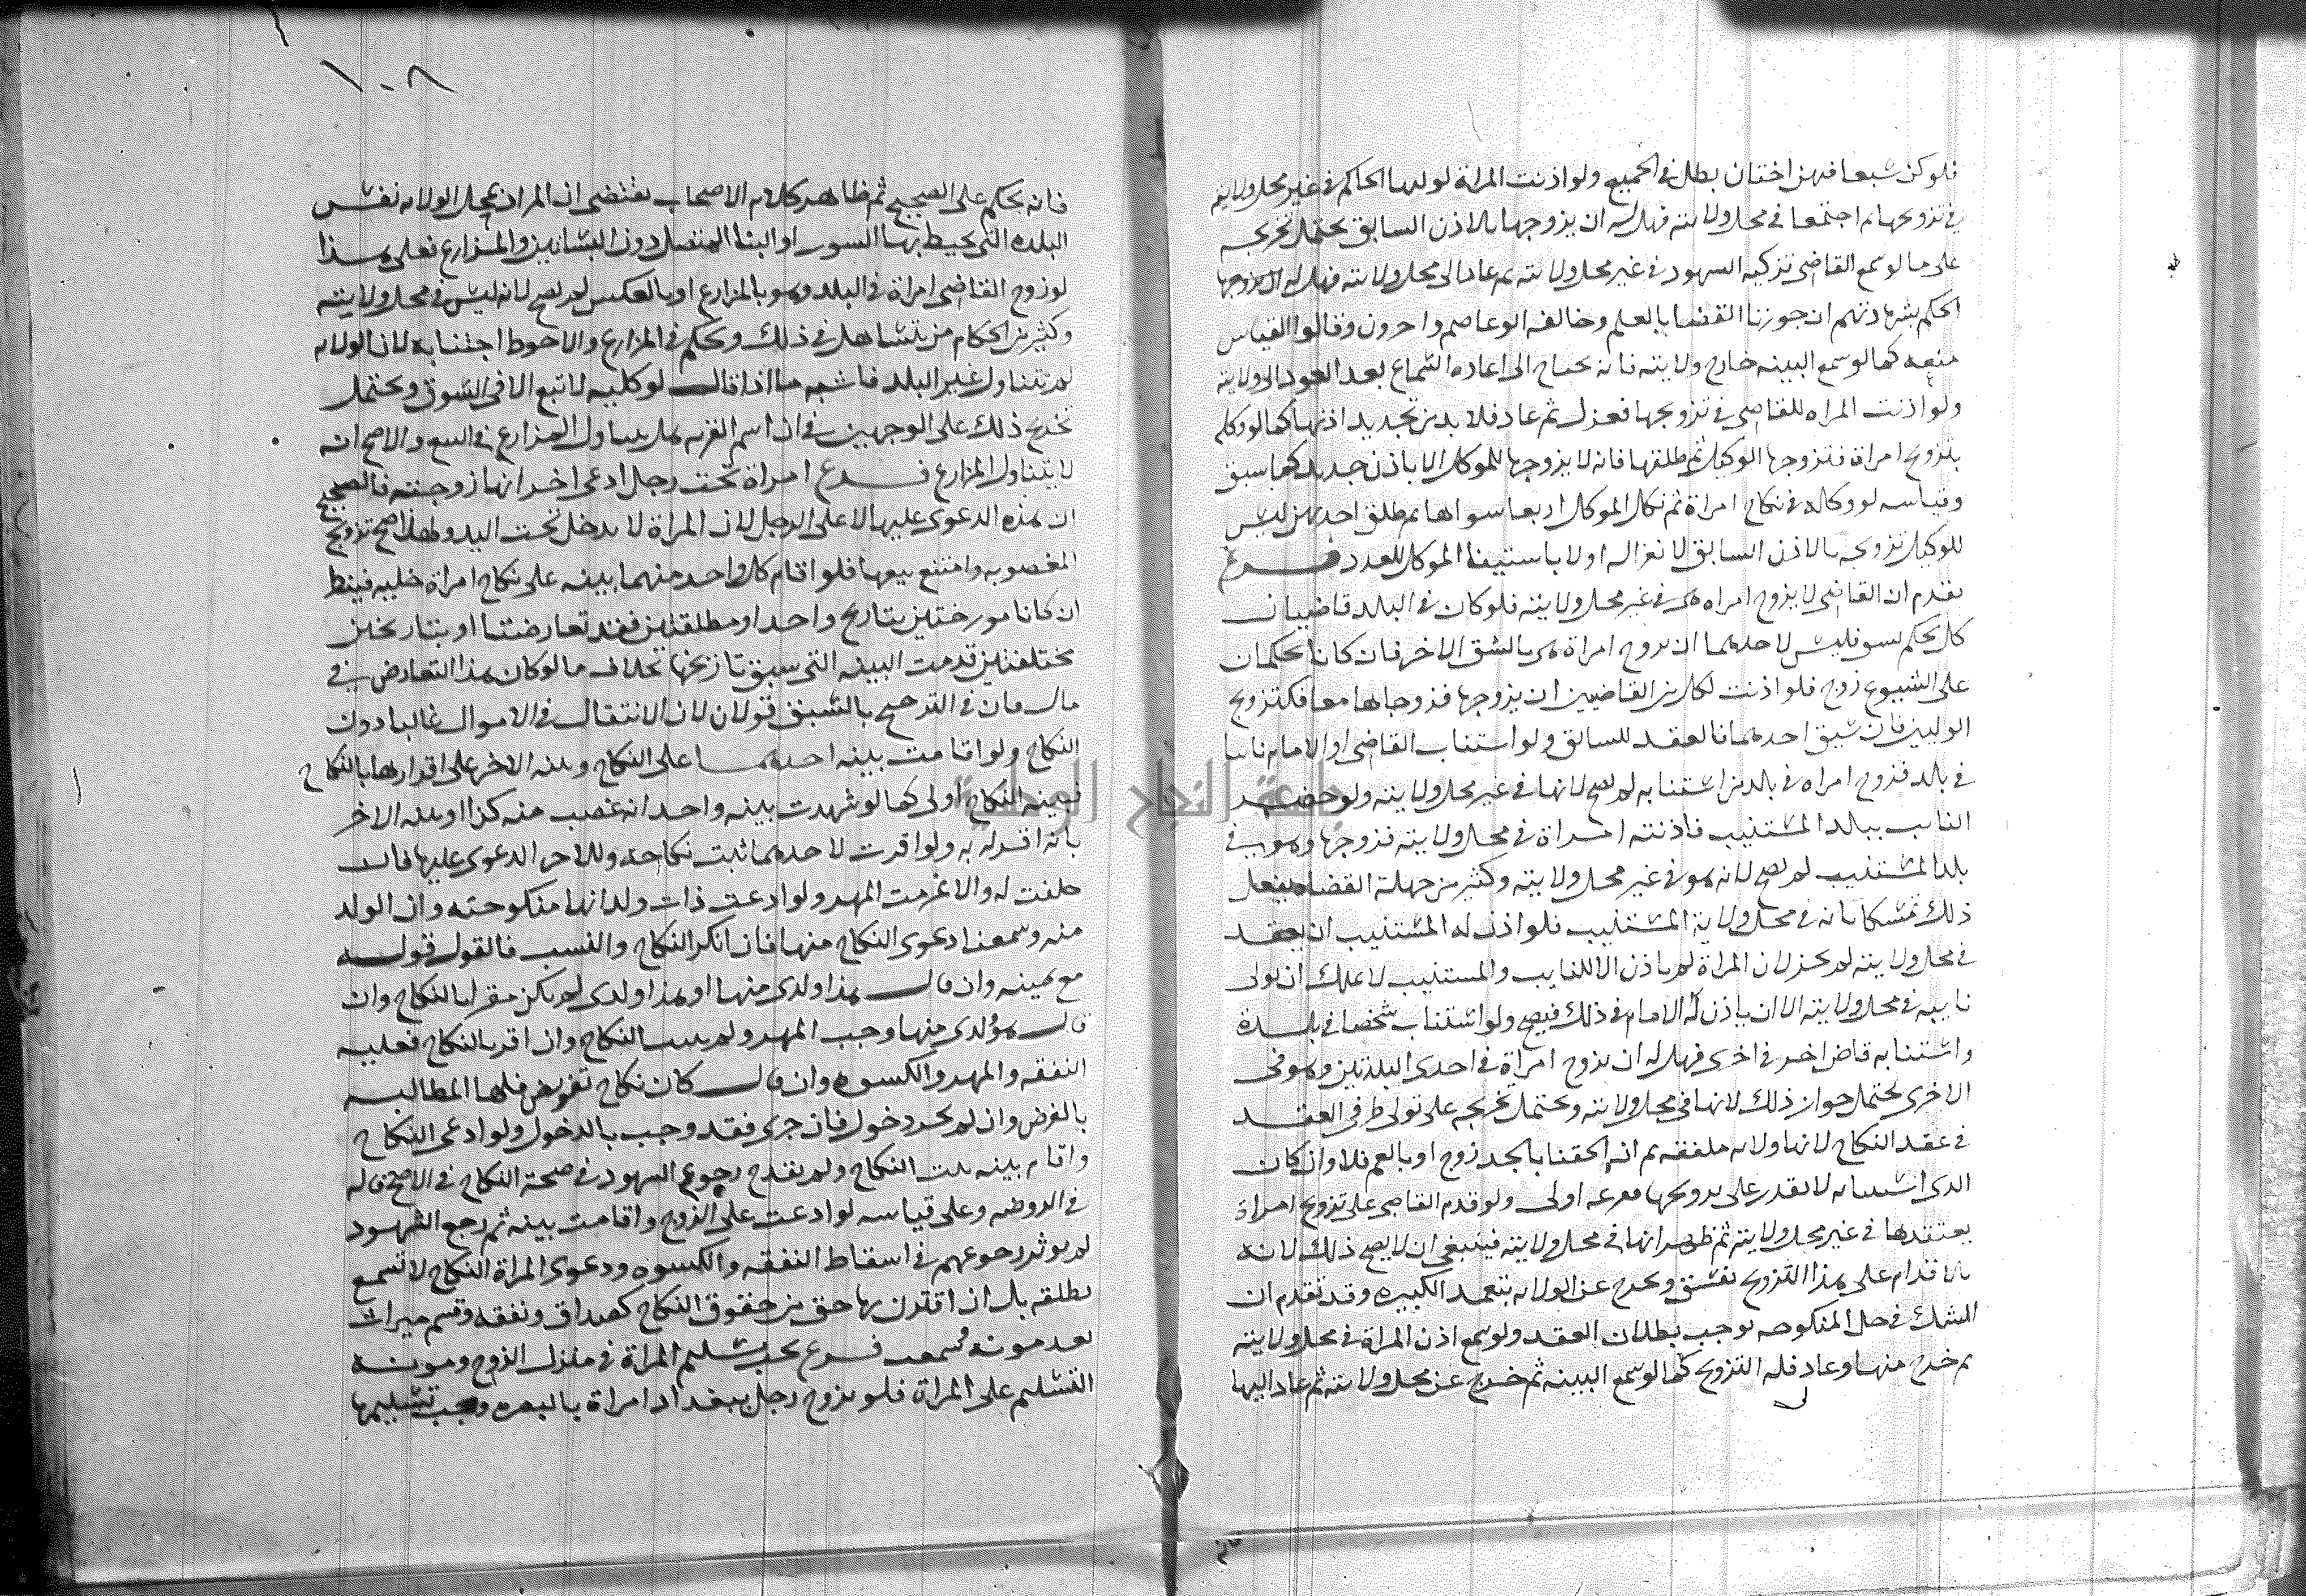 فلو كن سبعا فيهن اختان بطل في الجميع ولو اذنت المراة لوليها الحاكم في غير محل ولايته
في تزويجها ثم اجتمعا في محل ولايته فهل له ان يزوجها بالاذن السابق يحتمل تخريجه
على ما لو سمع القاضي تزكيه الشهود في غير محل ولايته ثم عاد الى محل ولايته فهل له
الحكم بشهادتهم ان جوزنا القضا بالعلم وخالفه ابو عاصم واخرون وقالوا القياس
منعه كما لو سمع البينه خارج ولايته فانه يحتاج الى اعاده السماع بعد العود الى ولايته
ولو اذنت المراه للقاضي في تزويجها فعزل ثم عاد فلا بد من تجديد اذنها كما لو وكله
بتزويج امراة فتزوجها الوكيل ثم طلقها فانه لا يزوجها للموكل الا باذن جديد كما سبق
وقياسه لو وكله في نكاح امراة ثم نكل الموكل اربعا سواها ثم طلق احديهن ليس
للوكيل تزويجه بالاذن السابق لانعزاله اولا باستيفا الموكل للعدد فرع
تقدم ان القاضي لا يزوج امراه هي في غير محل ولايته فلو كان في البلد قاضيان
كل يحكم بشق فليس لاحدهما ان يزوج امراة هي بالشق الاخر فان كانا يحكمان
على الشيوع زوج فلو اذنت لكل من القاضيين ان يزوجها فزوجاها معا فكتزويج
الوليين فان سبق احدهما فالعقد للسابق ولو استناب القاضي او الامام نايبا
في بلد فزوج امراه في بلد من استنابه لم يصح لانها في غير محل ولايته ولو حضر
النايب ببلد المستنيب فاذنته امراة في محل ولايته فزوجها وهو في
بلد المستنيب لم يصح لانه هو في غير محل ولايته وكثير من جهلة القضاه يفعل
ذلك تمسكا بانه في محل ولاية المستنيب فلو اذن له المستنيب ان يعقد
في محل ولايته لم يجز لان المراة لم تاذن الا للنايب والمستنيب لا يملك ان يولى
نايبه في محل ولايته الا ان ياذن له الامام في ذلك فيصح ولو استناب شخصا في بلدة
واستنابه قاض اخر في اخرى فهل له ان يزوج امراة في احدى البلدتين وهو في
الاخرى يحتمل جواز ذلك لانها في محل ولايته ويحتمل تخريجه على تولي طرفي العقد
في عقد النكاح لانها ولايه ملفقه ثم انه الحقنا بالجد زوج او بالعم فلا وان كان
الذي استنابه لا يقدر على تزويجها اولى ولو قدم القاضي على تزويج امراة
يعتقدها في غير محل ولايته ثم ظهر انها في محل ولايته فينبغي ان لا يصح ذلك لانه
بالاقدام على هذا التزويج يفسق ويخرج عن الولايه بتعمد الكبيره وقد تقدم ان
الشك في حل المنكوحه يوجب بطلان العقد ولو سمع اذن المراة في محل ولايته
ثم خرج منها وعاد فله التزويج كما لو سمع البينه ثم خرج عن محل ولايته ثم عاد اليها
١٠٨
فانه يحكم على الصحيح ثم ظاهر كلام الاصحاب يقتضي ان المراد بمحل الولايه نفس
البلده التي يحيط بها السور او البنا المتصل دون البساتين والمزارع فعلى هذا
لو زوج القاضي امراة في البلد وهو بالمزارع او بالعكس لم يصح لانه ليس في محل ولايته
وكثير من الحكام من يتساهل في ذلك ويحكم في المزارع والاحوط اجتنابه لان الولايه
لم تتناول غير البلد فاشبه ما اذا قال لوكليه لا تبع الا في السوق ويحتمل
تخريج ذلك على الوجهين في ان اسم القريه هل يتناول المزارع في البيع والاصح انه
لا يتناول المزارع فرع امراة تحت رجل ادعى اخر انها زوجته فالصحيح
ان هذه الدعوى عليها لا على الرجل لان المراة لا يدخل تحت اليد ولهذا صح تزويج
المغصوبه وامتنع بيعها فلو اقام كل واحد منهما بينه على نكاح امراة خليه فينظر
ان كانا مورختين بتاريخ واحد او مطلقتين فقد تعارضتا او بتاريخين
مختلفتين قدمت البينه التي سبق تاريخها بخلاف ما لو كان هذا التعارض في
مال فان في الترجيح بالسبق قولان لان الانتقال في الاموال غالبا دون
النكاح ولو اقامت بينه احدهما على النكاح وبينه الاخر على اقرارها بالنكاح
فبينه النكاح اولى كما لو شهدت بينه واحد انه غصب منه كذا او بينه الاخر
بانه اقر له به ولو اقرت لاحدهما ثبت نكاحه وللاخر الدعوى عليها فان
حلفت له والا غرمت المهر ولو ادعت ذات ولد انها منكوحته وان الولد
منه وسمعنا دعوى النكاح منها فان انكر النكاح والنسب فالقول قوله
مع يمينه وان قال هذا ولدي منها او هذا ولدي لم يكن مقرا بالنكاح وان
قال هو ولدي منها وجب المهر ولم يثبت النكاح وان اقر بالنكاح فعليه
النفقه والمهر والكسوه وان قال كان نكاح تفويض فلها المطالبه
بالفرض وان لم يجر دخول فان جرى فقد وجب بالدخول ولو ادعى النكاح
واقام بينه ثبت النكاح ولم يقدح رجوع الشهود في صحة النكاح في الاصح قاله
في الروضه وعلى قياسه لو ادعت على الزوج واقامت بينه ثم رجع الشهود
لم يوثر رجوعهم في اسقاط النفقه والكسوه ودعوى المراة النكاح لا تسمع
مطلقه بل ان اقترن بها حق من حقوق النكاح كصداق ونفقه وقسم ميراث
بعد موته سمعت فرع يجب تسليم المراة في منزل الزوج ومونه
التسليم على المراة فلو تزوج رجل ببغداد امراة بالبصره وجب تسليمها
جامعة النجاح الوطنية